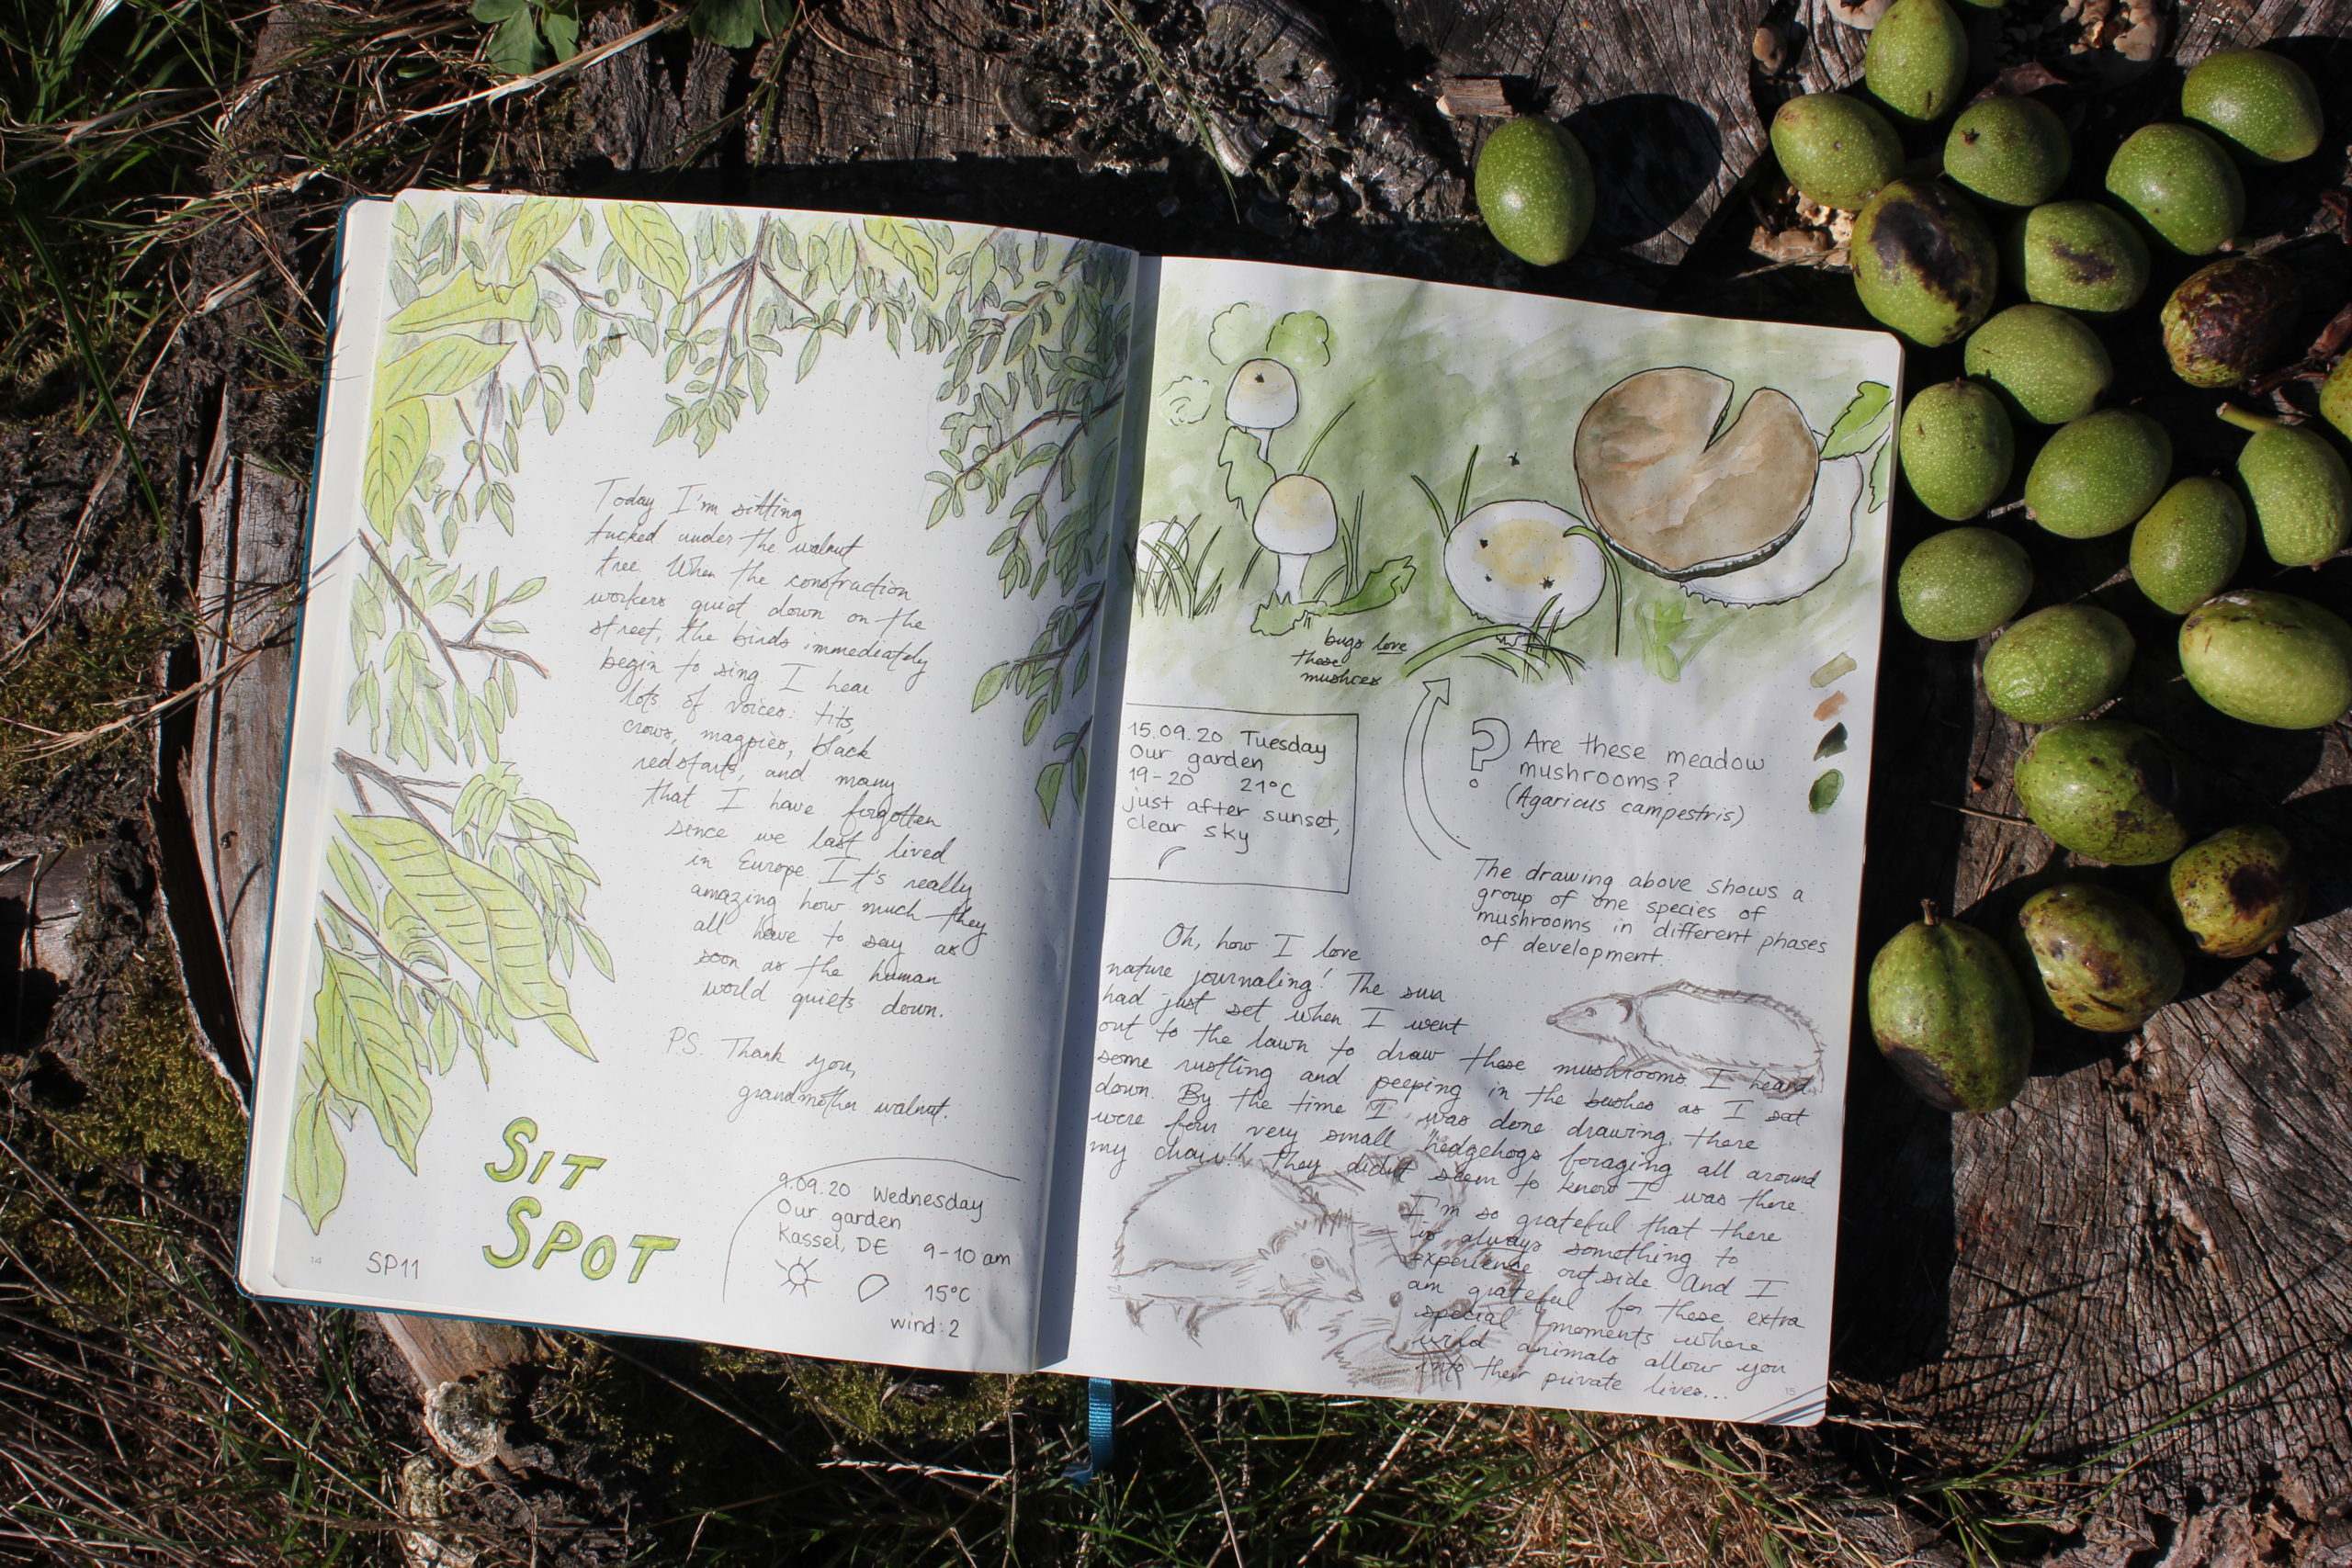 Today I'm sitting
tucked under the walnut
tree. When the construction
workers quiet down on the
street, the birds immediately
begin to sing. I hear
lots of voices: tits,
crows, magpies, black
redstarts, and many
that I have forgotten
since we last lived
in Europe. It's really
amazing how much they
all have to say as
soon as the human
world quiets down.
P.S. Thank you,
grandmother walnut.
SIT
SPOT
9.09.20 Wednesday
Our garden
Kassel, DE 9-10 am
15°C
wind: 2
14 SP11
bugs love
these
mushies
15.09.20 Tuesday
Our garden
19-20 21°C
just after sunset,
clear sky
? Are these meadow
mushrooms?
(Agaricus campestris)
The drawing above shows a
group of one species of
mushrooms in different phases
of development.
Oh, how I love
nature journaling! The sun
had just set when I went
out to the lawn to draw these mushrooms. I heard
some rustling and peeping in the bushes as I sat
down. By the time I was done drawing, there
were four very small hedgehogs foraging all around
my chair!! They didn't seem to know I was there.
I'm so grateful that there
is always something to
experience outside. And I
am grateful for these extra
special moments where
wild animals allow you
into their private lives...
15